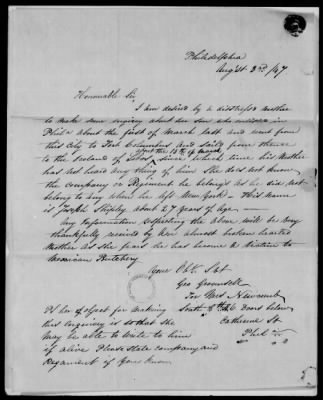 Philadelphia
August 3rd /47
Honourable Sir,
I am desired by a distressed mother
to make some inquiry about her son who enlisted in
Phila about the first of March last and went from
this City to Fort Columbus and saild from thence
about the 18th of March
to the Iseland of Lobos since which time his Mother
has not heard any thing of him she does not know
the company or Regiment he belongs as he did not
belong to any when he left New York - His name
is Joseph Shipley about 29 years of age.
Any information respecting the above will be very
thankfully received by her almost broken hearted
Mother as she fears he has become a victim to
Mexican Butchery
Your Obt. Svt
Geo
For Mrs Newcomb
South 8th 6 Doors below
Catherine St
Phil
PS her object for making
this enquiery is so that she
may be able to write to him
if alive Please state company and
Regament if you know